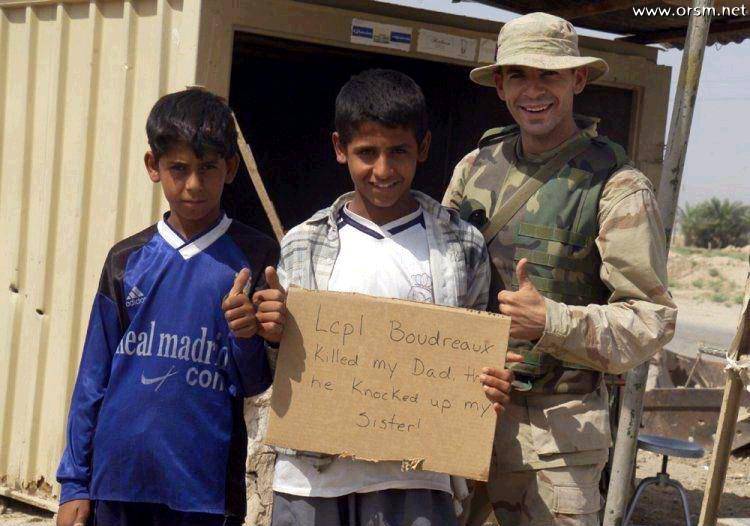 www.orsm.net
adidas
neal madrid
con
Lcpl Boudreaux
Killed my Dad, th
he Knocked up my
Sister!